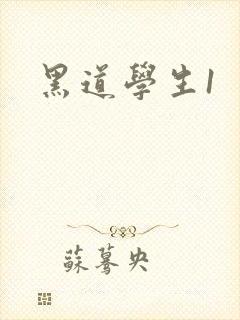 黑道學生1
蘇驀央